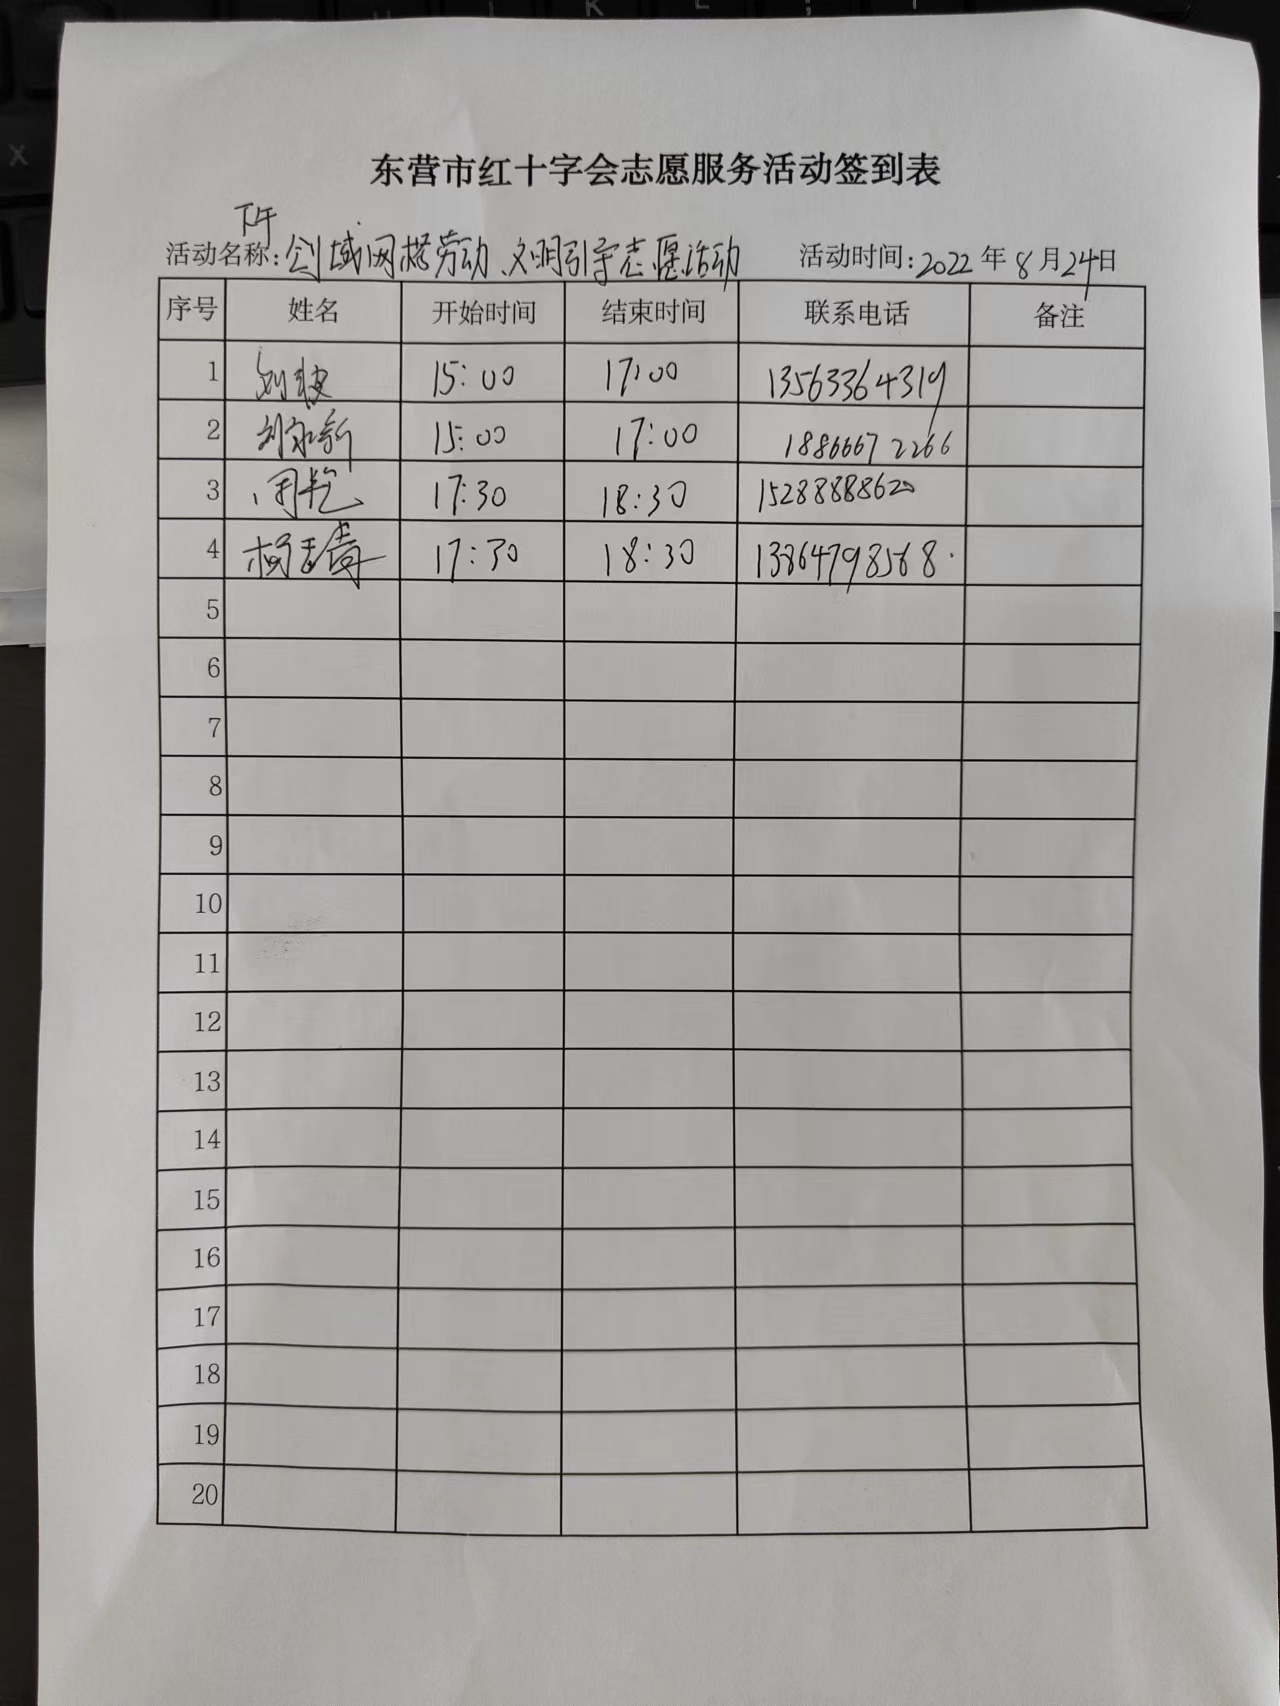 东营市红十字会志愿服务活动签到表
下午
活动名称:创城网格劳动、文明引导志愿活动 活动时间:2022年8月24日
序号 姓名 开始时间 结束时间 联系电话 备注
1 刘 15:00 17:00 13563364319
2 刘新 15:00 17:00 18866672266
3 周 17:30 18:30 15288888620
4 杨青 17:30 18:30 13864798568
5
6
7
8
9
10
11
12
13
14
15
16
17
18
19
20